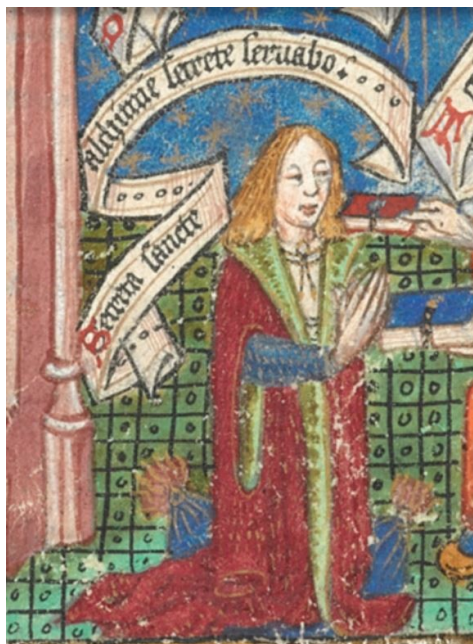 Secreta sancte
alchymie secrete seruabo